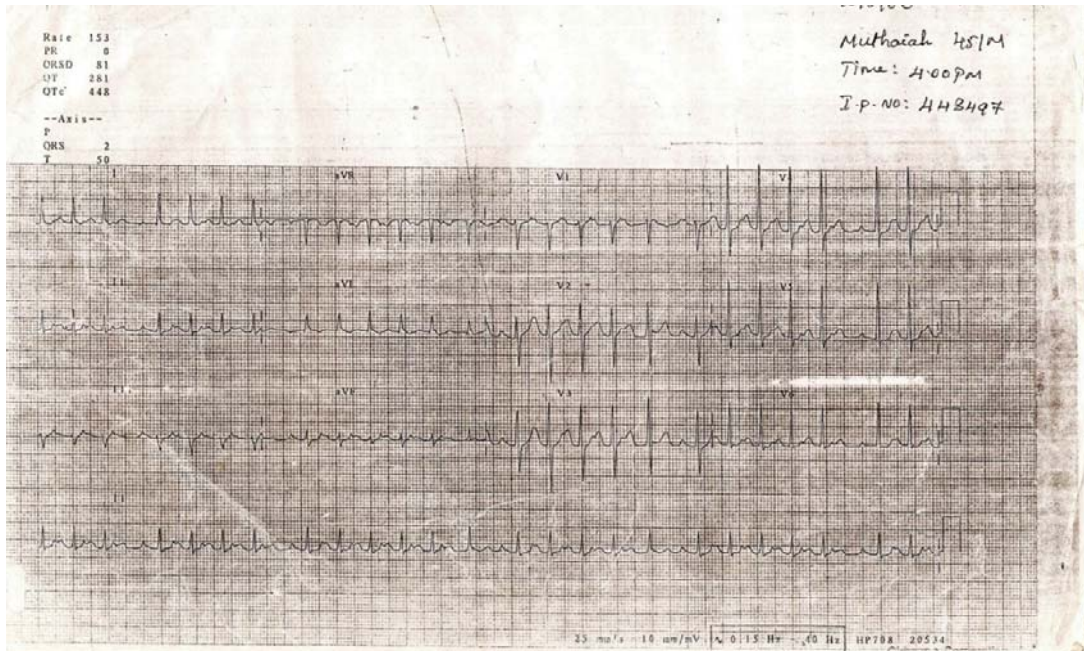 Rate 153
PR 0
QRSD 81
QT 281
QTc 448
--Axis--
P
QRS 2
T 50
Muthaiah 45/M
Time: 4.00PM
I.P.NO: 448497
I aVR V1
aVF V2
aVF V3 V6
25 mm/s 10 mm/mV 0.15 Hz - 40 Hz HP708 20534